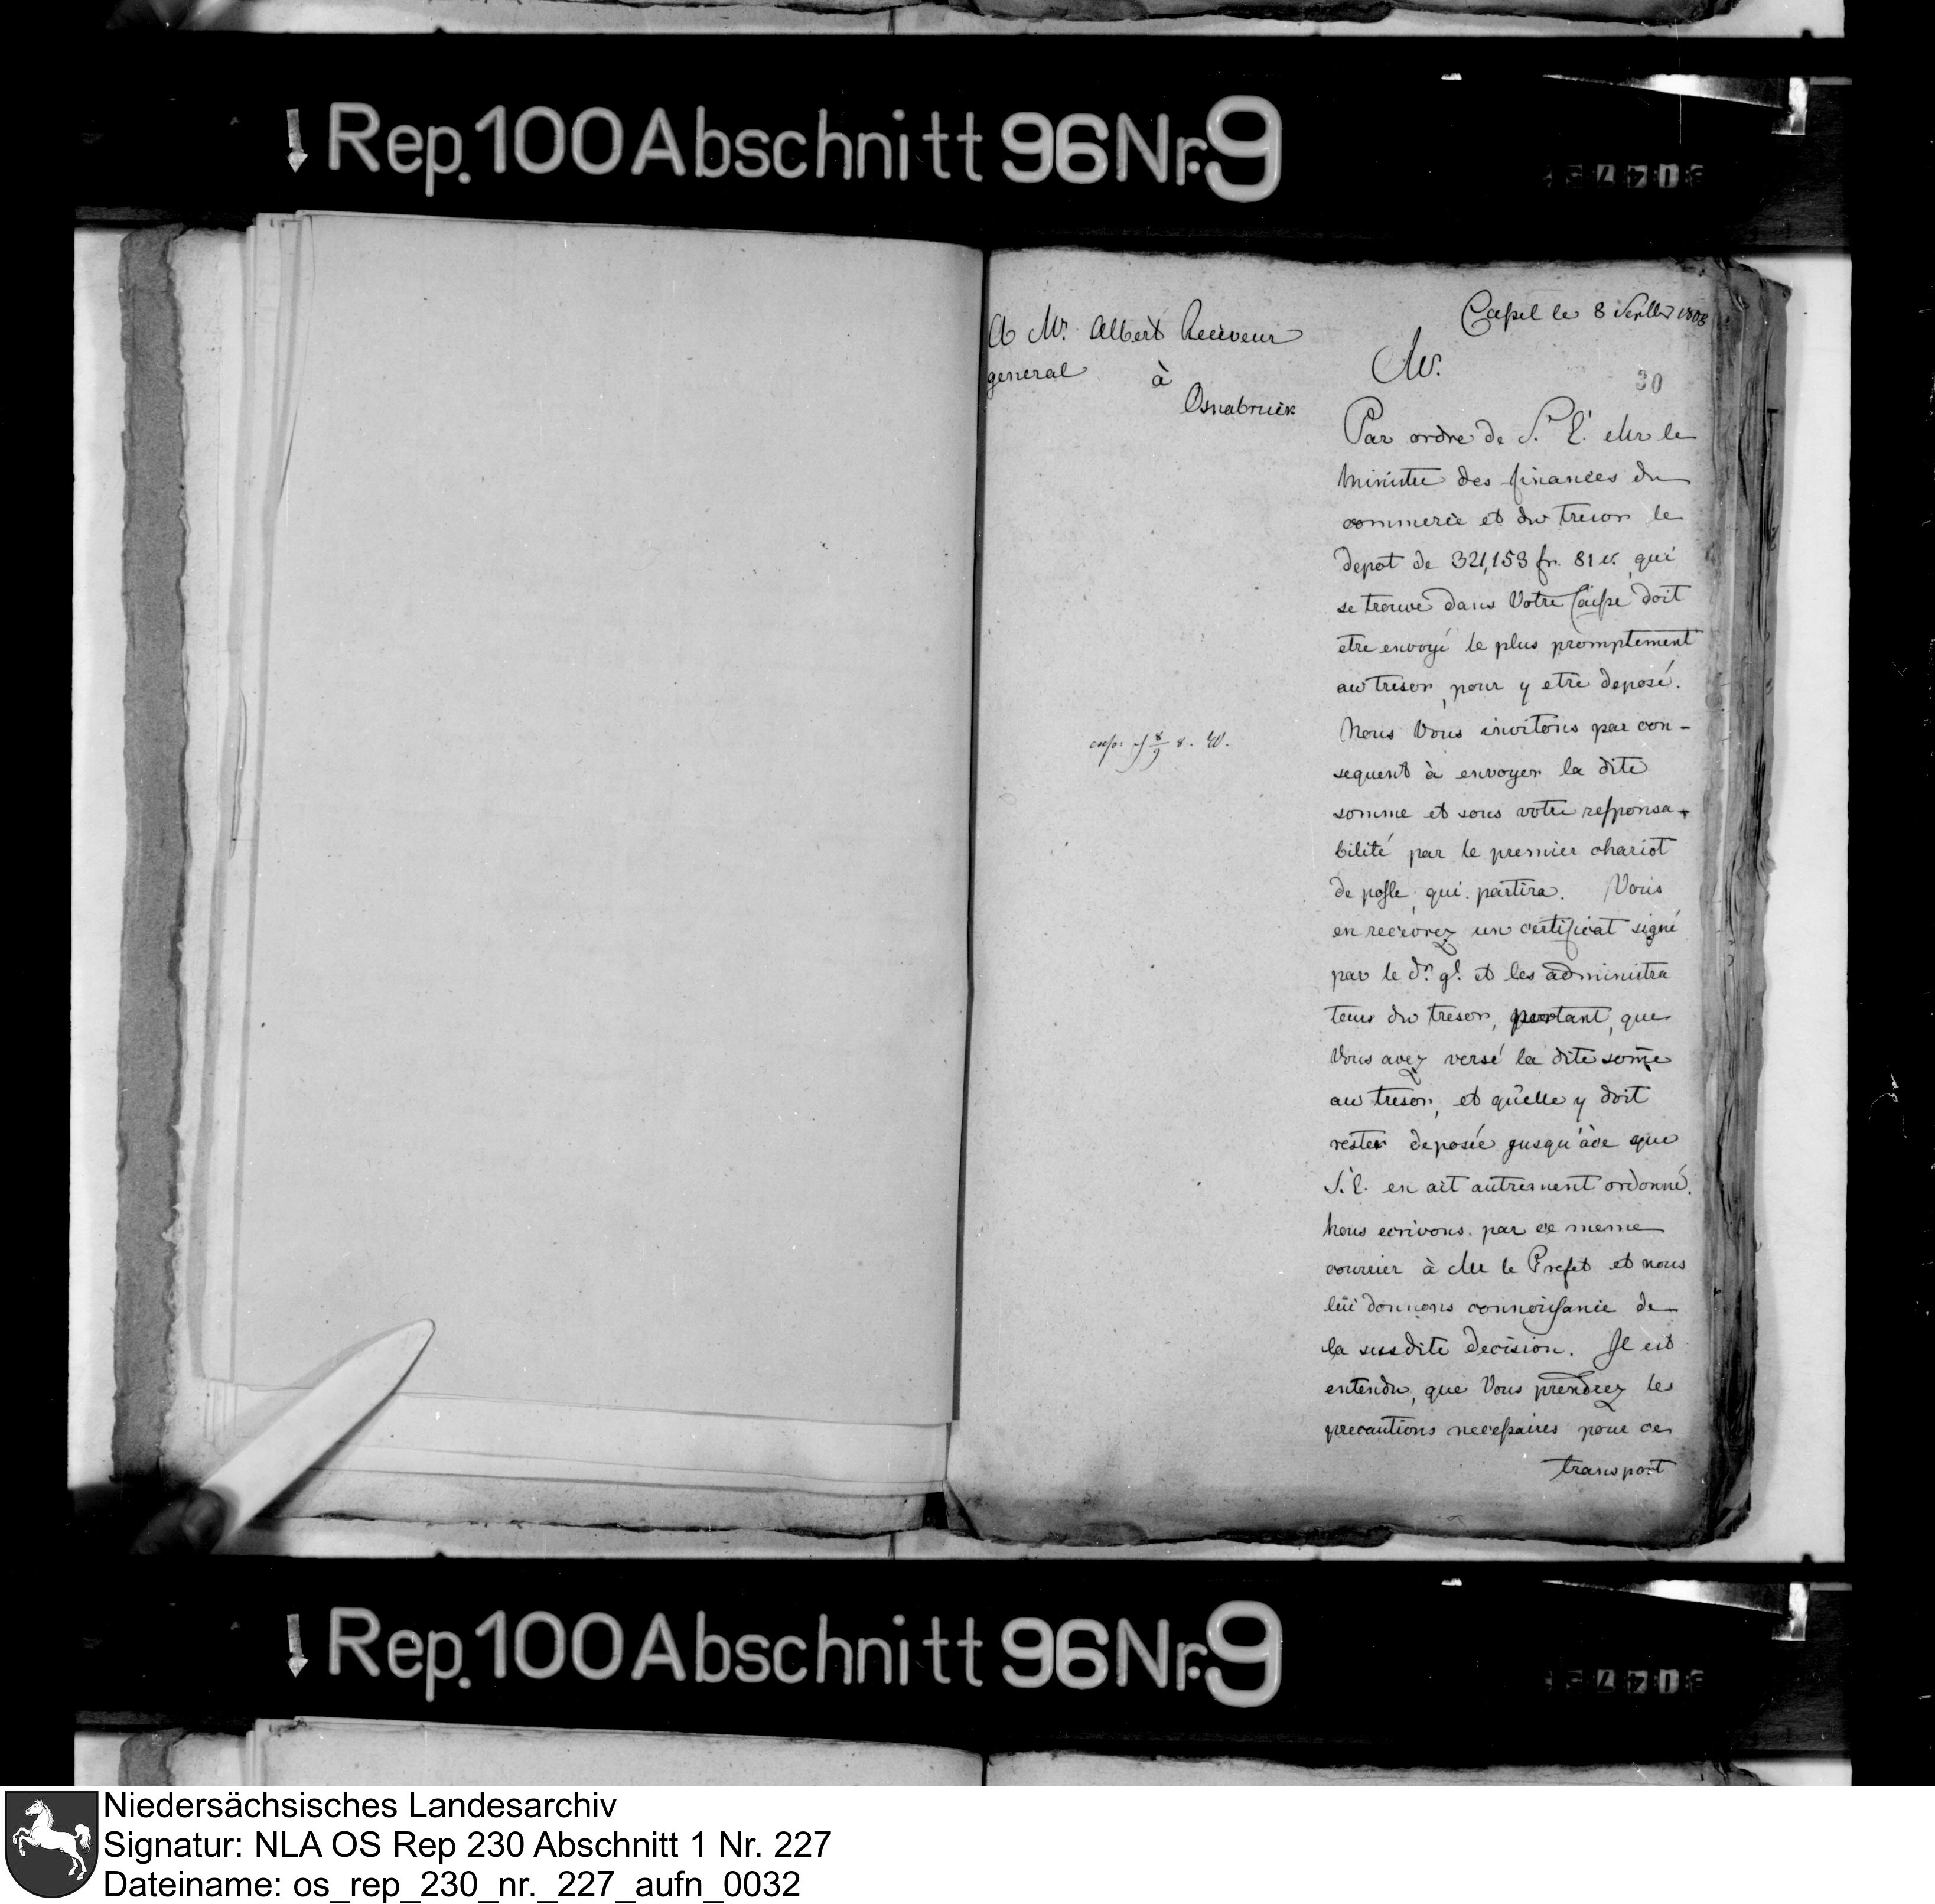 Rep. 100 Abschnitt 96 Nr. 9
Cassel le 8 1808
A Mr. Albert Receveur
general à
Osnabruck
Mr.
30
Par ordre de S. E. Mr le
Ministre des finances du
commerce et du tresor le
depot de 321,153 fr. 81 c. qui
se trouve dans Votre Caisse doit
etre envoyé le plus promptement
au tresor, pour y etre deposé.
Nous Vous invitons par con-
sequent à envoyer la dite
somme et sous votre responsa-
bilité par le premier chariot
de poste, qui partira. Vous
en recevrez un certificat signé
par le Dr. gl. et les administra
teurs du tresor, portant, que
Vous avez versé la dite som̄e
au tresor, et qu'elle y doit
rester deposée jusqu'à ce que
S. E. en ait autrement ordonné.
Nous ecrivons par ce meme
courrier à Mr le Prefet et nous
lui donnons connoissance de
la susdite decision. Il est
entendu, que Vous prendrez les
precautions necessaires pour ce
transport
Rep. 100 Abschnitt 96 Nr. 9
Niedersächsisches Landesarchiv
Signatur: NLA OS Rep 230 Abschnitt 1 Nr. 227
Dateiname: os_rep_230_nr._227_aufn_0032